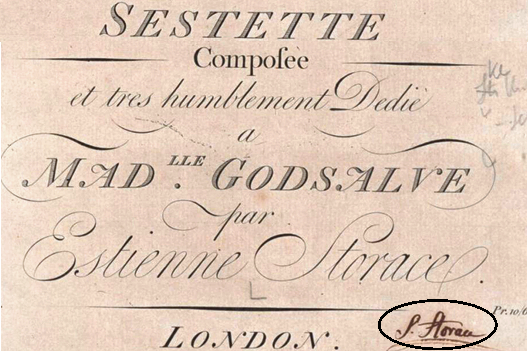 SESTETTE
Composèe
et tres humblement Dediè
a
MAD.LLE GODSALVE
par
Estienne Storace.
Pr. 10/6
LONDON.
S. Storace